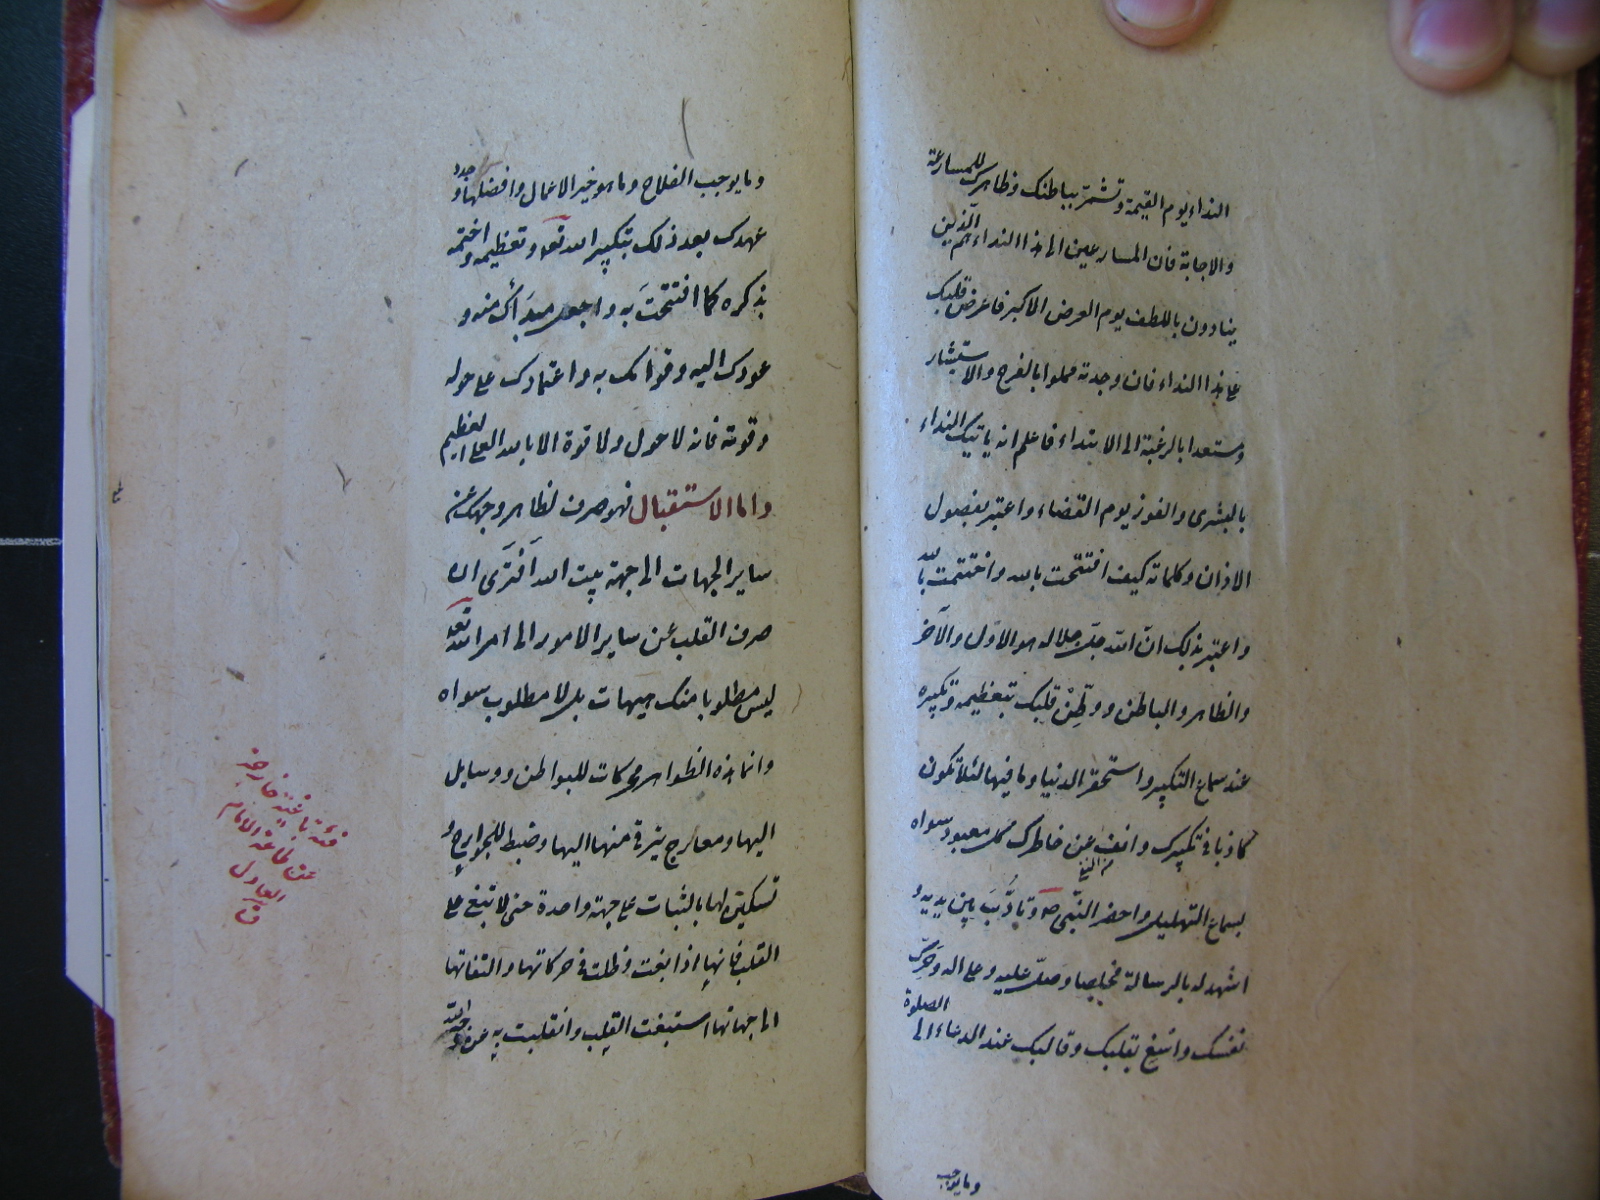 النداء يوم القيمة وتشمّر بباطنك وظاهرك للمسارعة
والاجابة فان المسارعين الى هذا النداء هم الذين
ينادون باللطف يوم العرض الاكبر فاعرض قلبك
على هذا النداء فان وجدته مملوا بالفرح والاستبشار
ومستعدا بالرغبة الى الابتداء فاعلم انه ياتيك النداء
بالبشرى والفوز يوم القضاء واعتبر بفصول
الاذان وكلماته كيف افتتحت بالله واختتمت بالله
واعتبر بذلك انّ الله جلّ جلاله هو الاوّل والآخر
والظاهر والباطن ووطّن قلبك بتعظيمه وتكبيره
عند سماع التكبير واستحقر الدنيا وما فيها لئلا تكون
كاذبا في تكبيرك وانف عن خاطرك كل معبود سواه
بسماع التهليل واحضر النبي ص وتادّب بين يديه و
اشهد له بالرسالة مخلصا وصلّ عليه وعلى اله وحرّك
نفسك واسع بقلبك وقالبك عند الدعاء الى الصلوة
وما يوجب
وما يوجب الفلاح وما هو خير الاعمال وافضلها وجدد
عهدك بعد ذلك بتكبير الله تعو وتعظيمه واختمه
بذكره كما افتتحت به واجعل مبدأك منه و
عودك اليه وقوامك به واعتمادك على حوله
وقوته فانه لا حول ولا قوة الا بالله العلي العظيم
واما الاستقبال فهو صرف لظاهر وجهك عن
ساير الجهات الى جهة بيت الله أفترى ان
صرف القلب عن ساير الامور الى امر الله تعو
ليس مطلوبا منك هيهات بل لا مطلوب سواه
وانما هذه الظواهر محركات للبواطن ووسايل
اليها ومعارج يترقى منها اليها وضبط للجوارح و
تسكين لها بالثبات على جهة واحدة حتى لا تبغي على
القلب فانها اذا بغت وظلت في حركاتها والتفاتها
الى جهاتها استتبعت القلب وانقلبت به عن وجه الله
فئة باغية خارجة
عن طاعة الامام
العادل